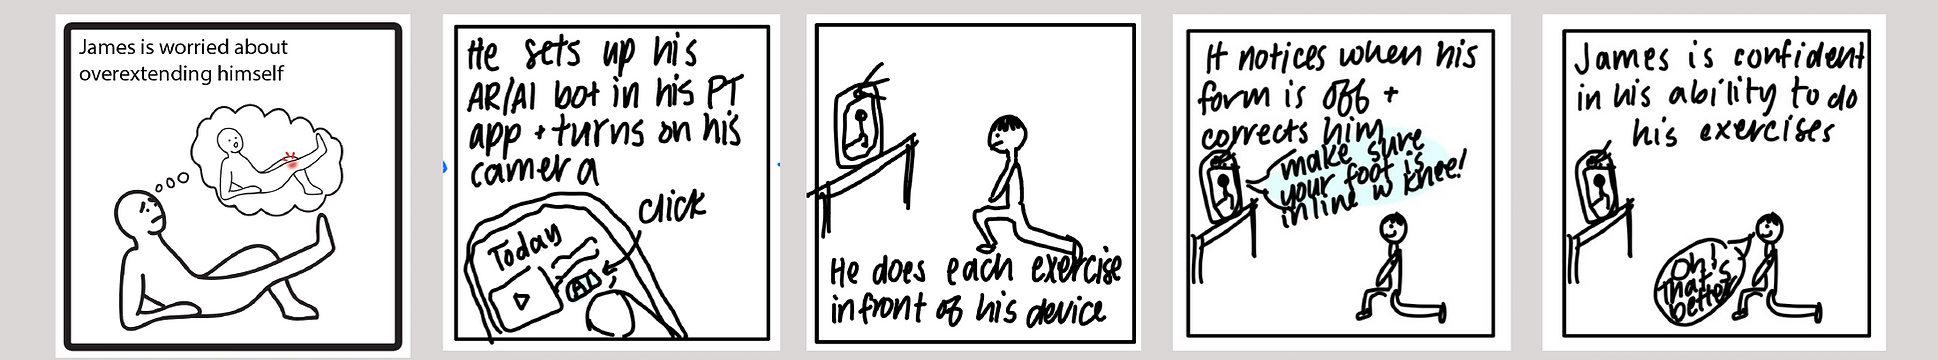 James is worried about
overextending himself
He sets up his
AR/AI bot in his PT
app + turns on his
camera
click
Today
AI
He does each exercise
in front of his device
It notices when his
form is off +
corrects him
make sure
your foot is
inline w knee!
James is confident
in his ability to do
his exercises
Oh!
That's
better